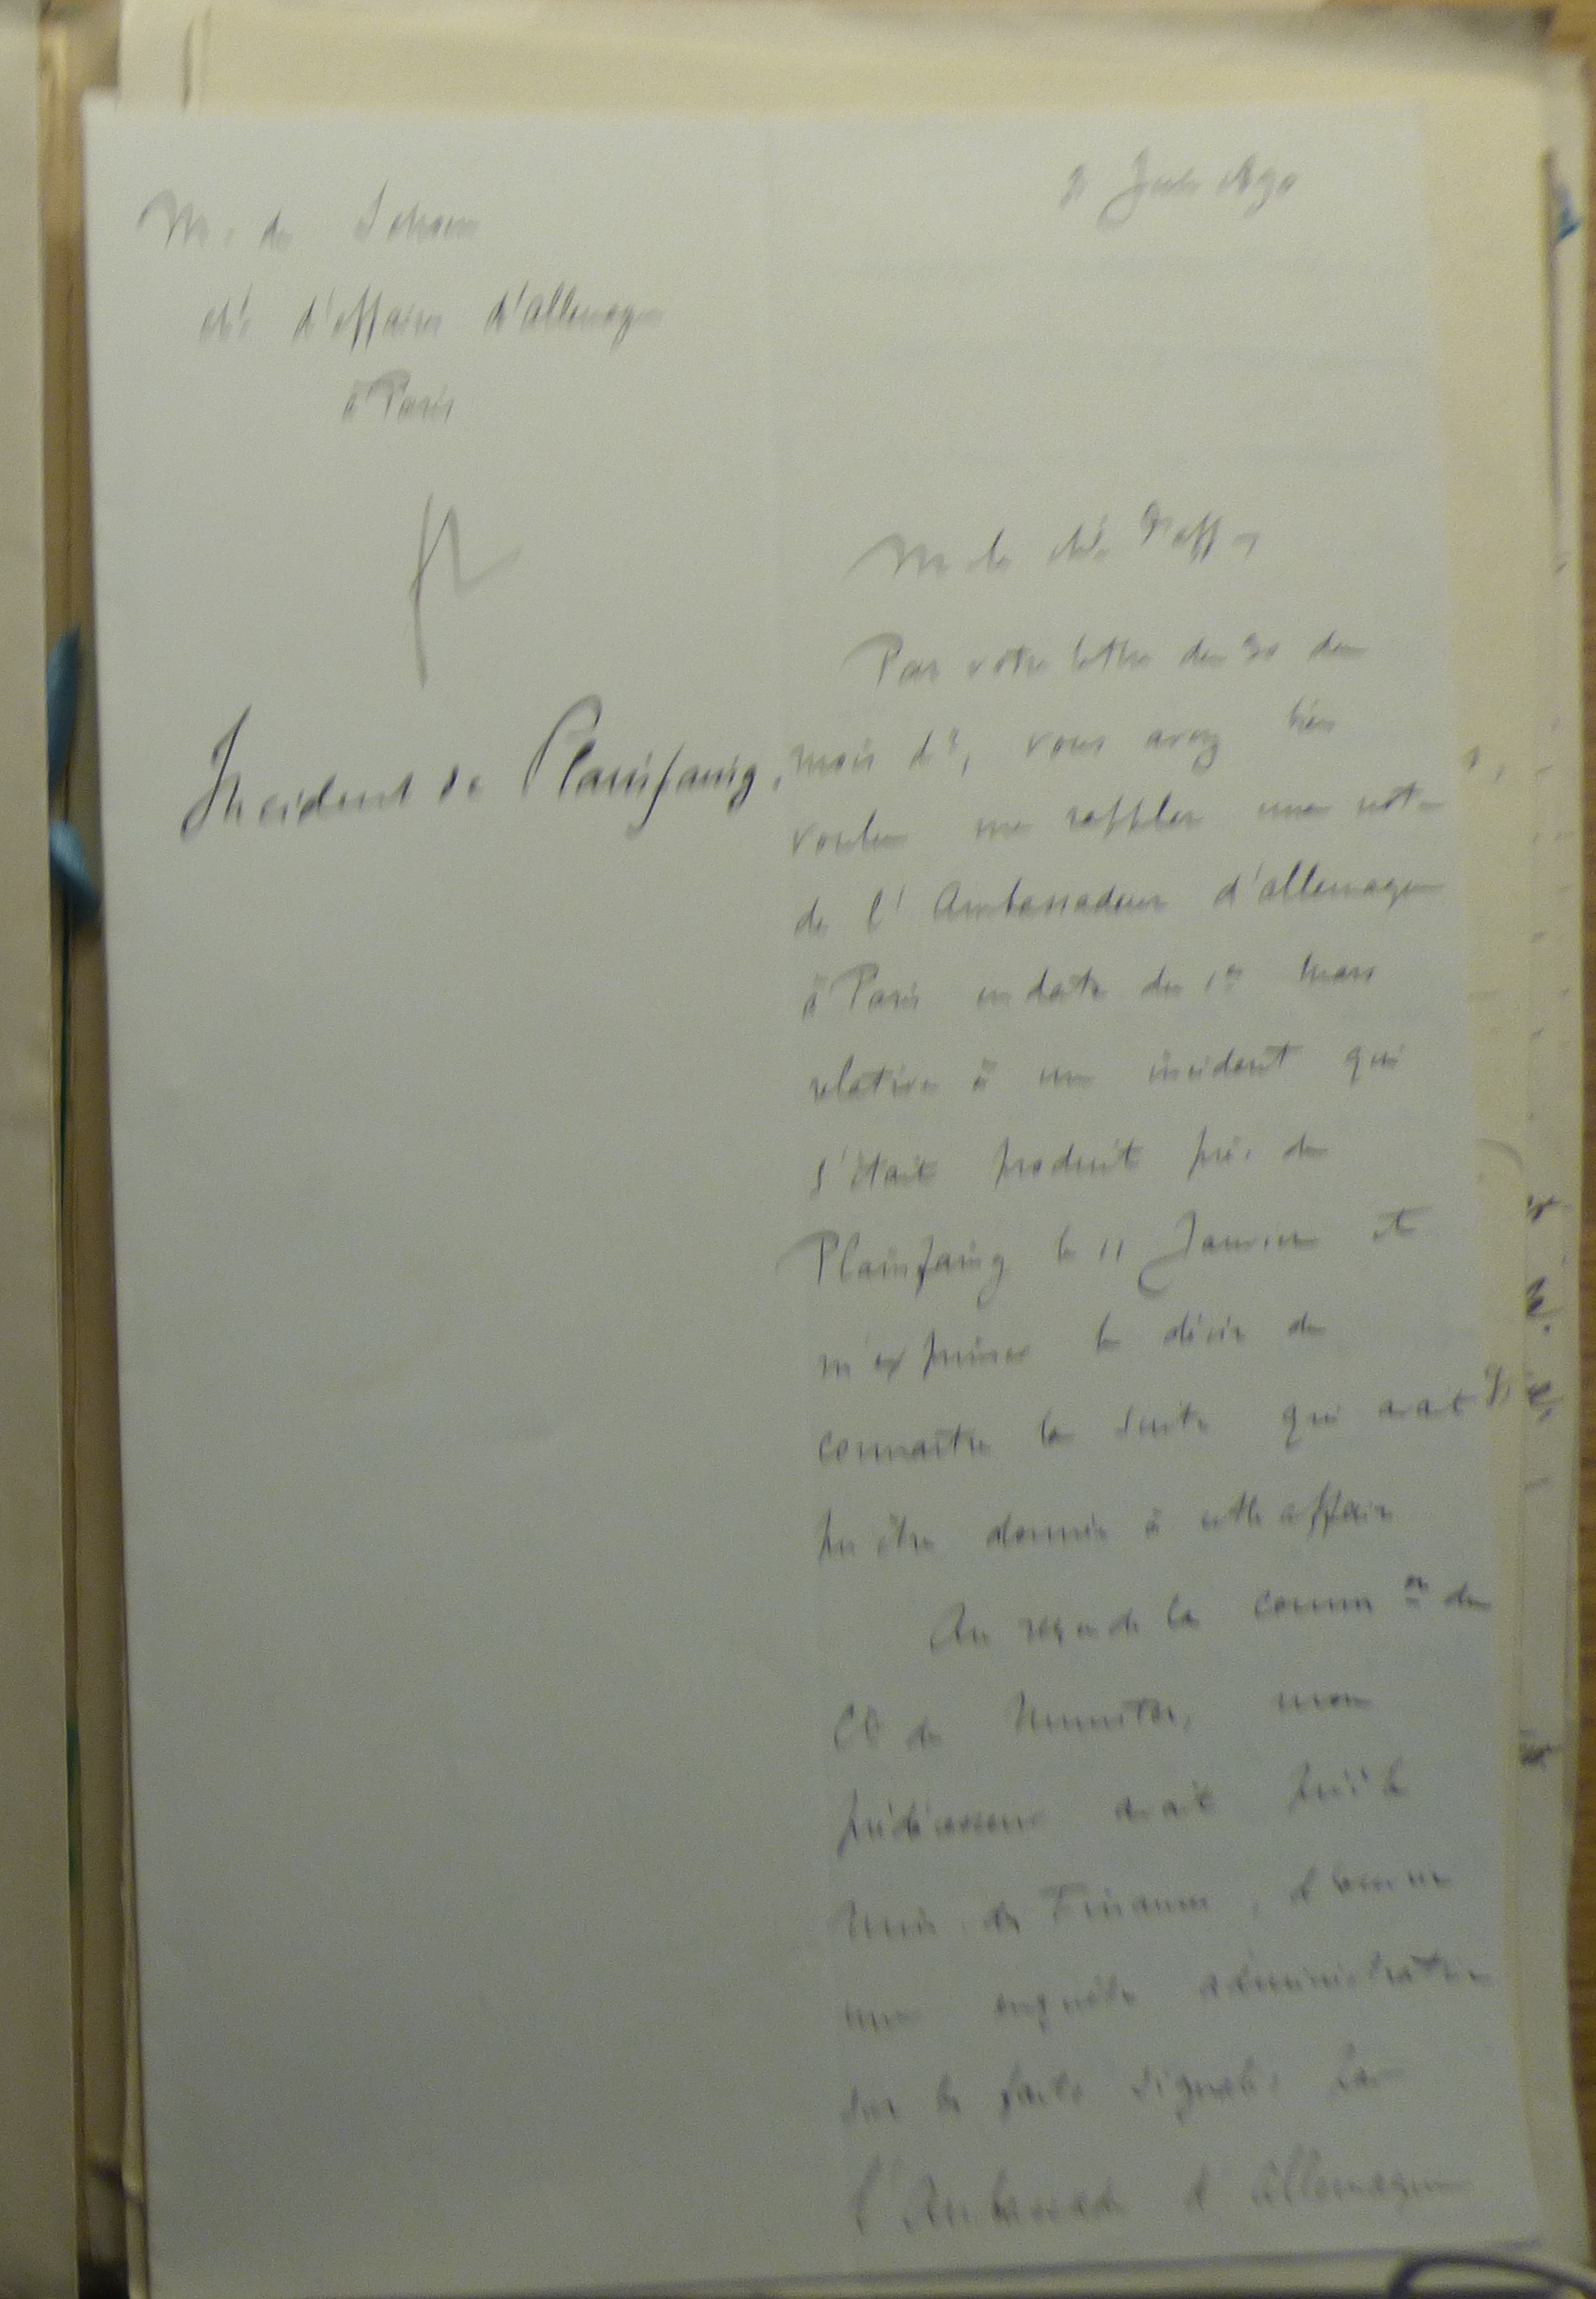 M. de Schoen
ché d'affaires d'Allemagne
à Paris
Incident de Plainfaing,
M le ché d'aff es
Par votre lettre du 30 du
mois dr, vous avez bien
voulu me rappeler une note
de l'Ambassadeur d'Allemagne
à Paris en date du 1er Mars
relative à un incident qui
s'était produit près de
Plainfaing le 11 Janvier et
m'exprimer le désir de
connaître la suite qui avait
pu être donnée à cette affaire
Au reçu de la comm on du
Cte de Munster, mon
prédécesseur avait prié le
Min. des Finances, d'ouvrir
une enquête administrative
sur les faits signalés par
l'Ambassade d'Allemagne